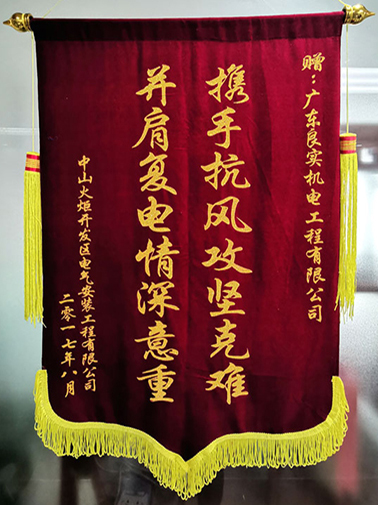 赠：广东良实机电工程有限公司
携手抗风攻坚克难
并肩复电情深意重
中山火炬开发区电气安装工程有限公司
二零一七年八月